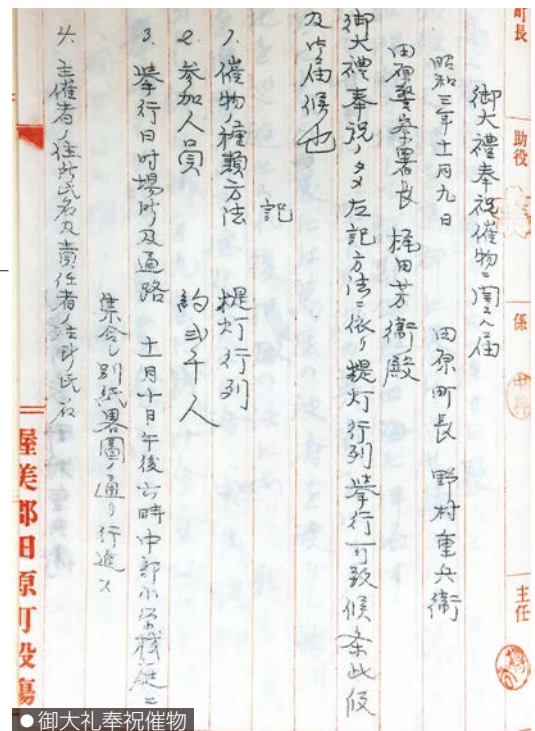 町長
助役
係
主任
御大禮奉祝催物ニ関スル届
昭和三年十一月九日 田原町長 野村重兵衛
田原警察署長 梶田芳衛殿
御大禮奉祝ノタメ左記方法ニ依リ提灯行列挙行可致候条此段
及御届候也
記
1. 催物ノ種類方法 提灯行列
2. 参加人員 約弐千人
3. 挙行日时場所及通路 十一月十日午後六時中部小学校庭ニ
集合シ別紙畧圖ノ通リ行進ス
4. 主催者ノ住所氏名及責任者ノ住所氏名
渥美郡田原町役場
●御大礼奉祝催物